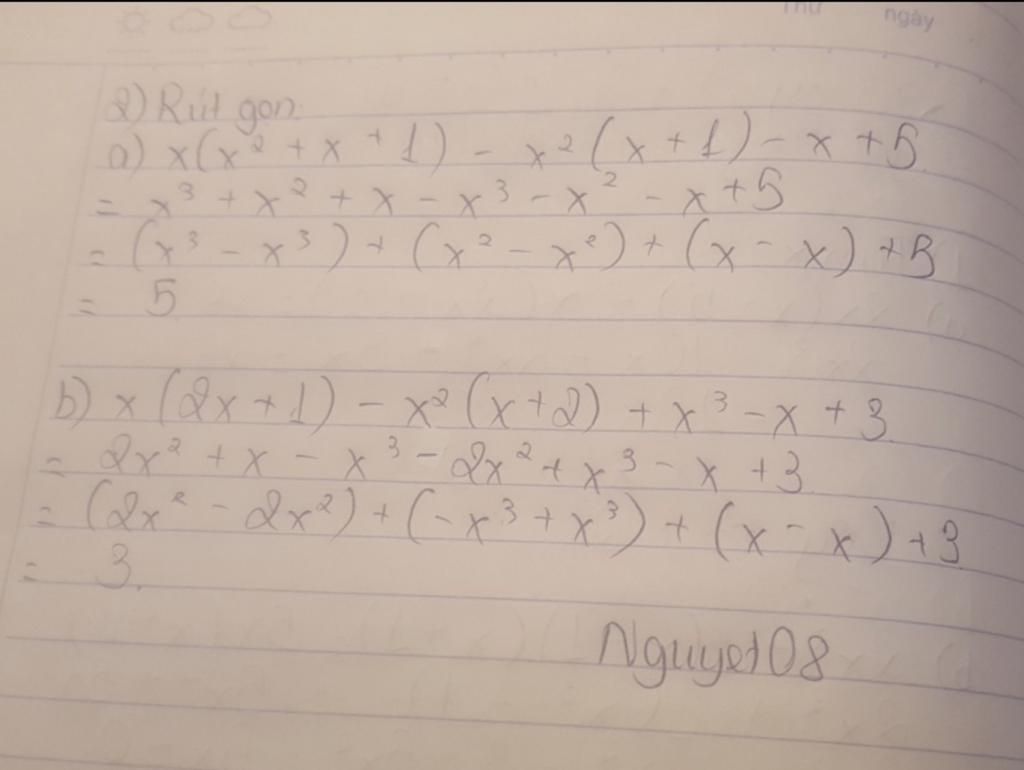 Thứ
ngày
2) Rút gọn:
a) x(x² + x + 1) - x²(x + 1) - x + 5
= x³ + x² + x - x³ - x² - x + 5
= (x³ - x³) + (x² - x²) + (x - x) + 5
= 5
b) x(2x + 1) - x²(x + 2) + x³ - x + 3
= 2x² + x - x³ - 2x² + x³ - x + 3
= (2x² - 2x²) + (-x³ + x³) + (x - x) + 3
= 3.
Nguyet08